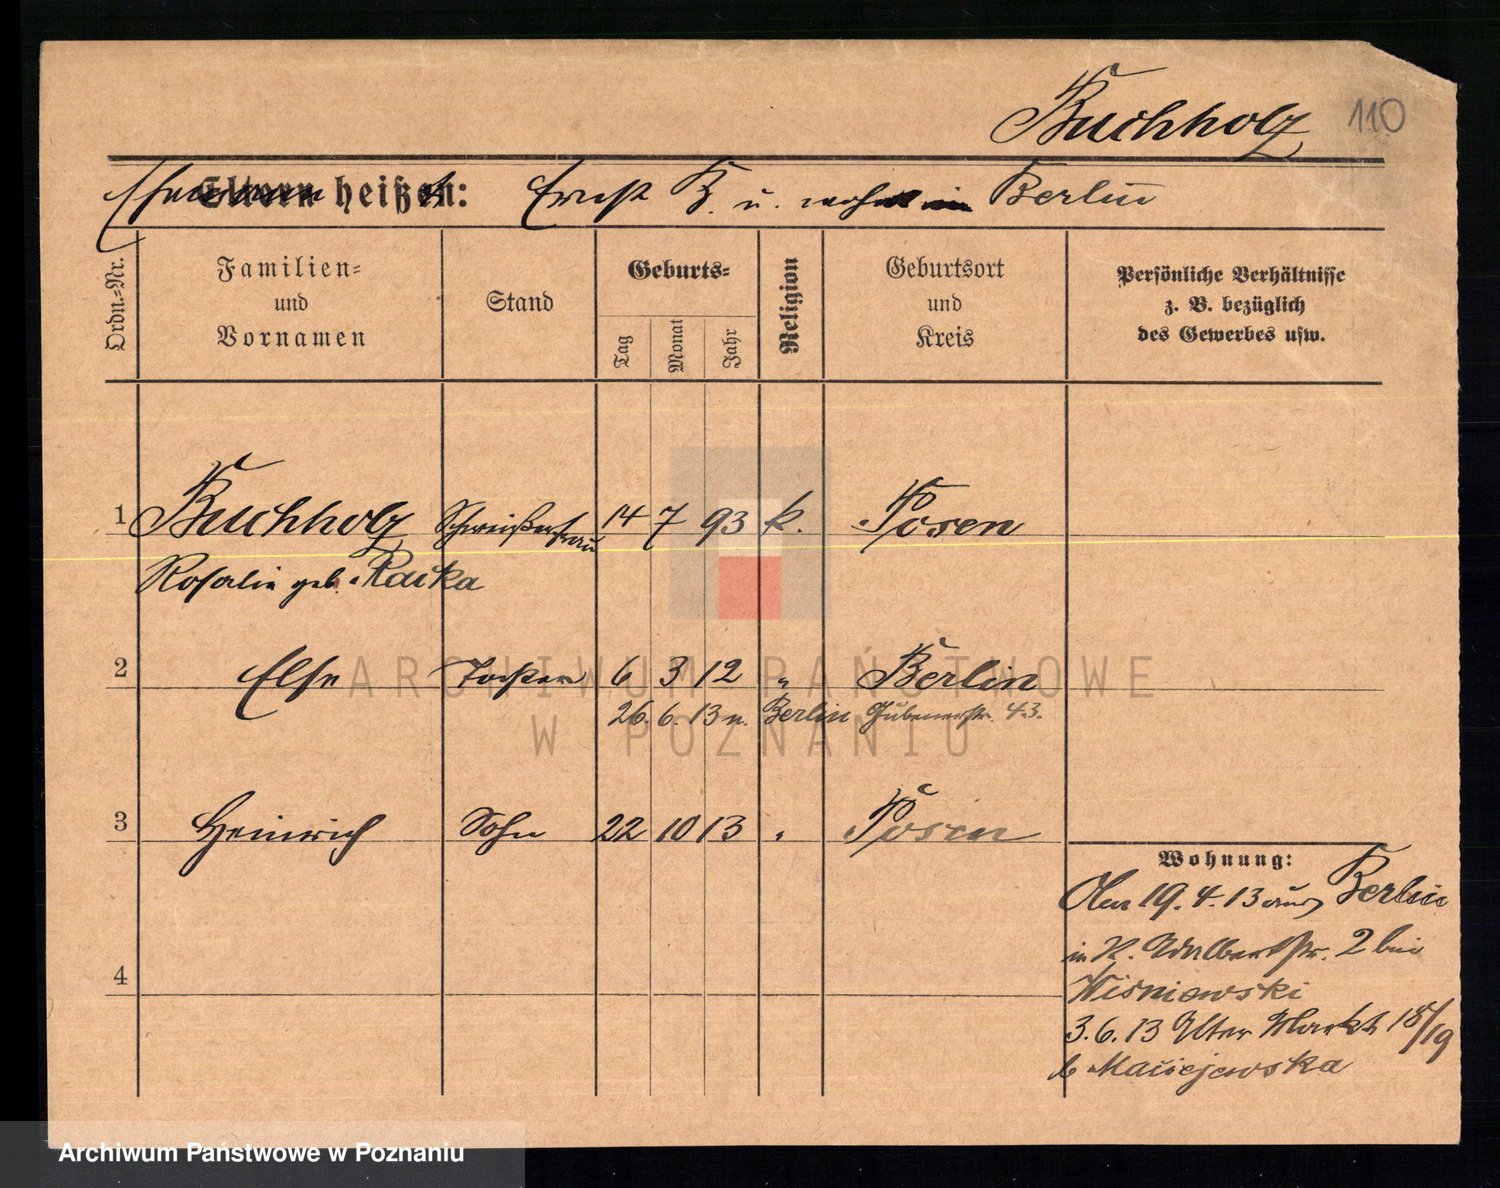 Buchholz 110
Eltern heißen: Ehemann Ernst B. u. wohnt in Berlin
Ordn.-Nr.
Familien-
und
Vornamen
Stand
Geburts-
Tag
Monat
Jahr
Religion
Geburtsort
und
Kreis
Persönliche Verhältnisse
z. B. bezüglich
des Gewerbes usw.
1 Buchholz Schweißersfrau 14 7 93 k. Posen
Rosalie geb. Racka
2 Else Tochter 6 3 12 " Berlin
26. 6. 13 n. Berlin Gubenerstr. 43.
3 Heinrich Sohn 22 10 13 " Posen
4
Wohnung:
Am 19. 4. 13 aus Berlin
in P. Adalbertstr. 2 bei
Wisniewski
3. 6. 13 Alter Markt 18/19
b Maciejewska
ARCHIWUM PAŃSTWOWE
W POZNANIU
Archiwum Państwowe w Poznaniu